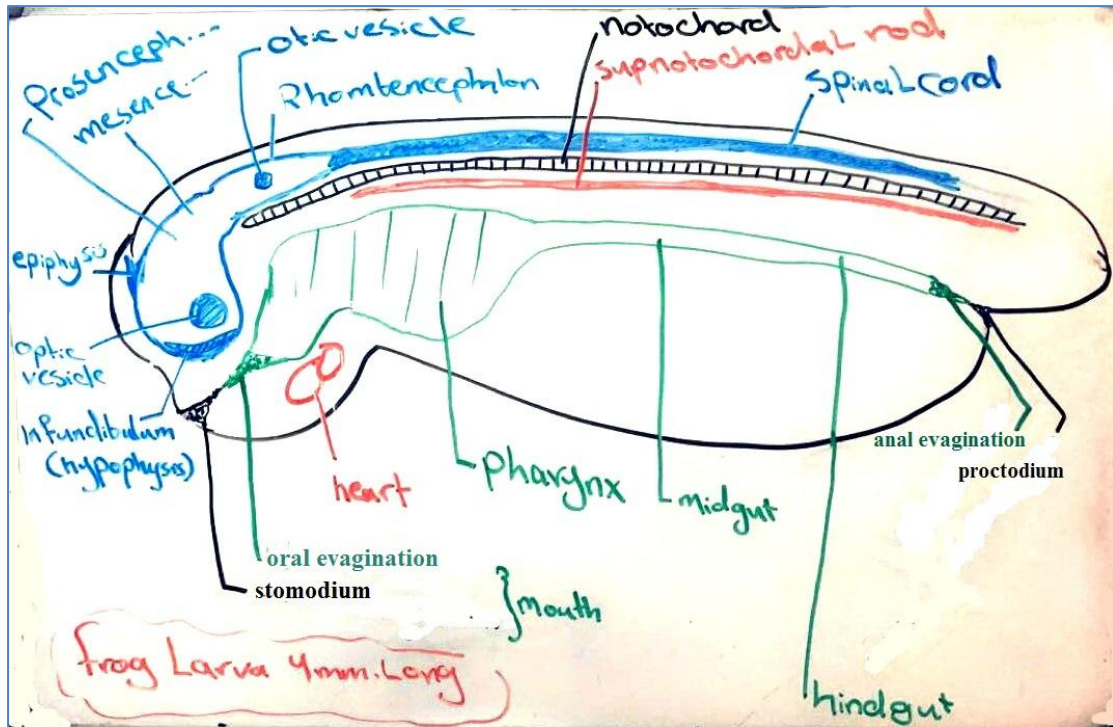 Prosenceph....
mesence....
otic vesicle
Rhombencephalon
notochord
supnotochordal rod
spinal cord
epiphysis
optic
vesicle
Infundibulum
(hypophysis)
heart
pharynx
midgut
anal evagination
proctodium
oral evagination
stomodium
} mouth
frog Larva 4mm. Long
hindgut